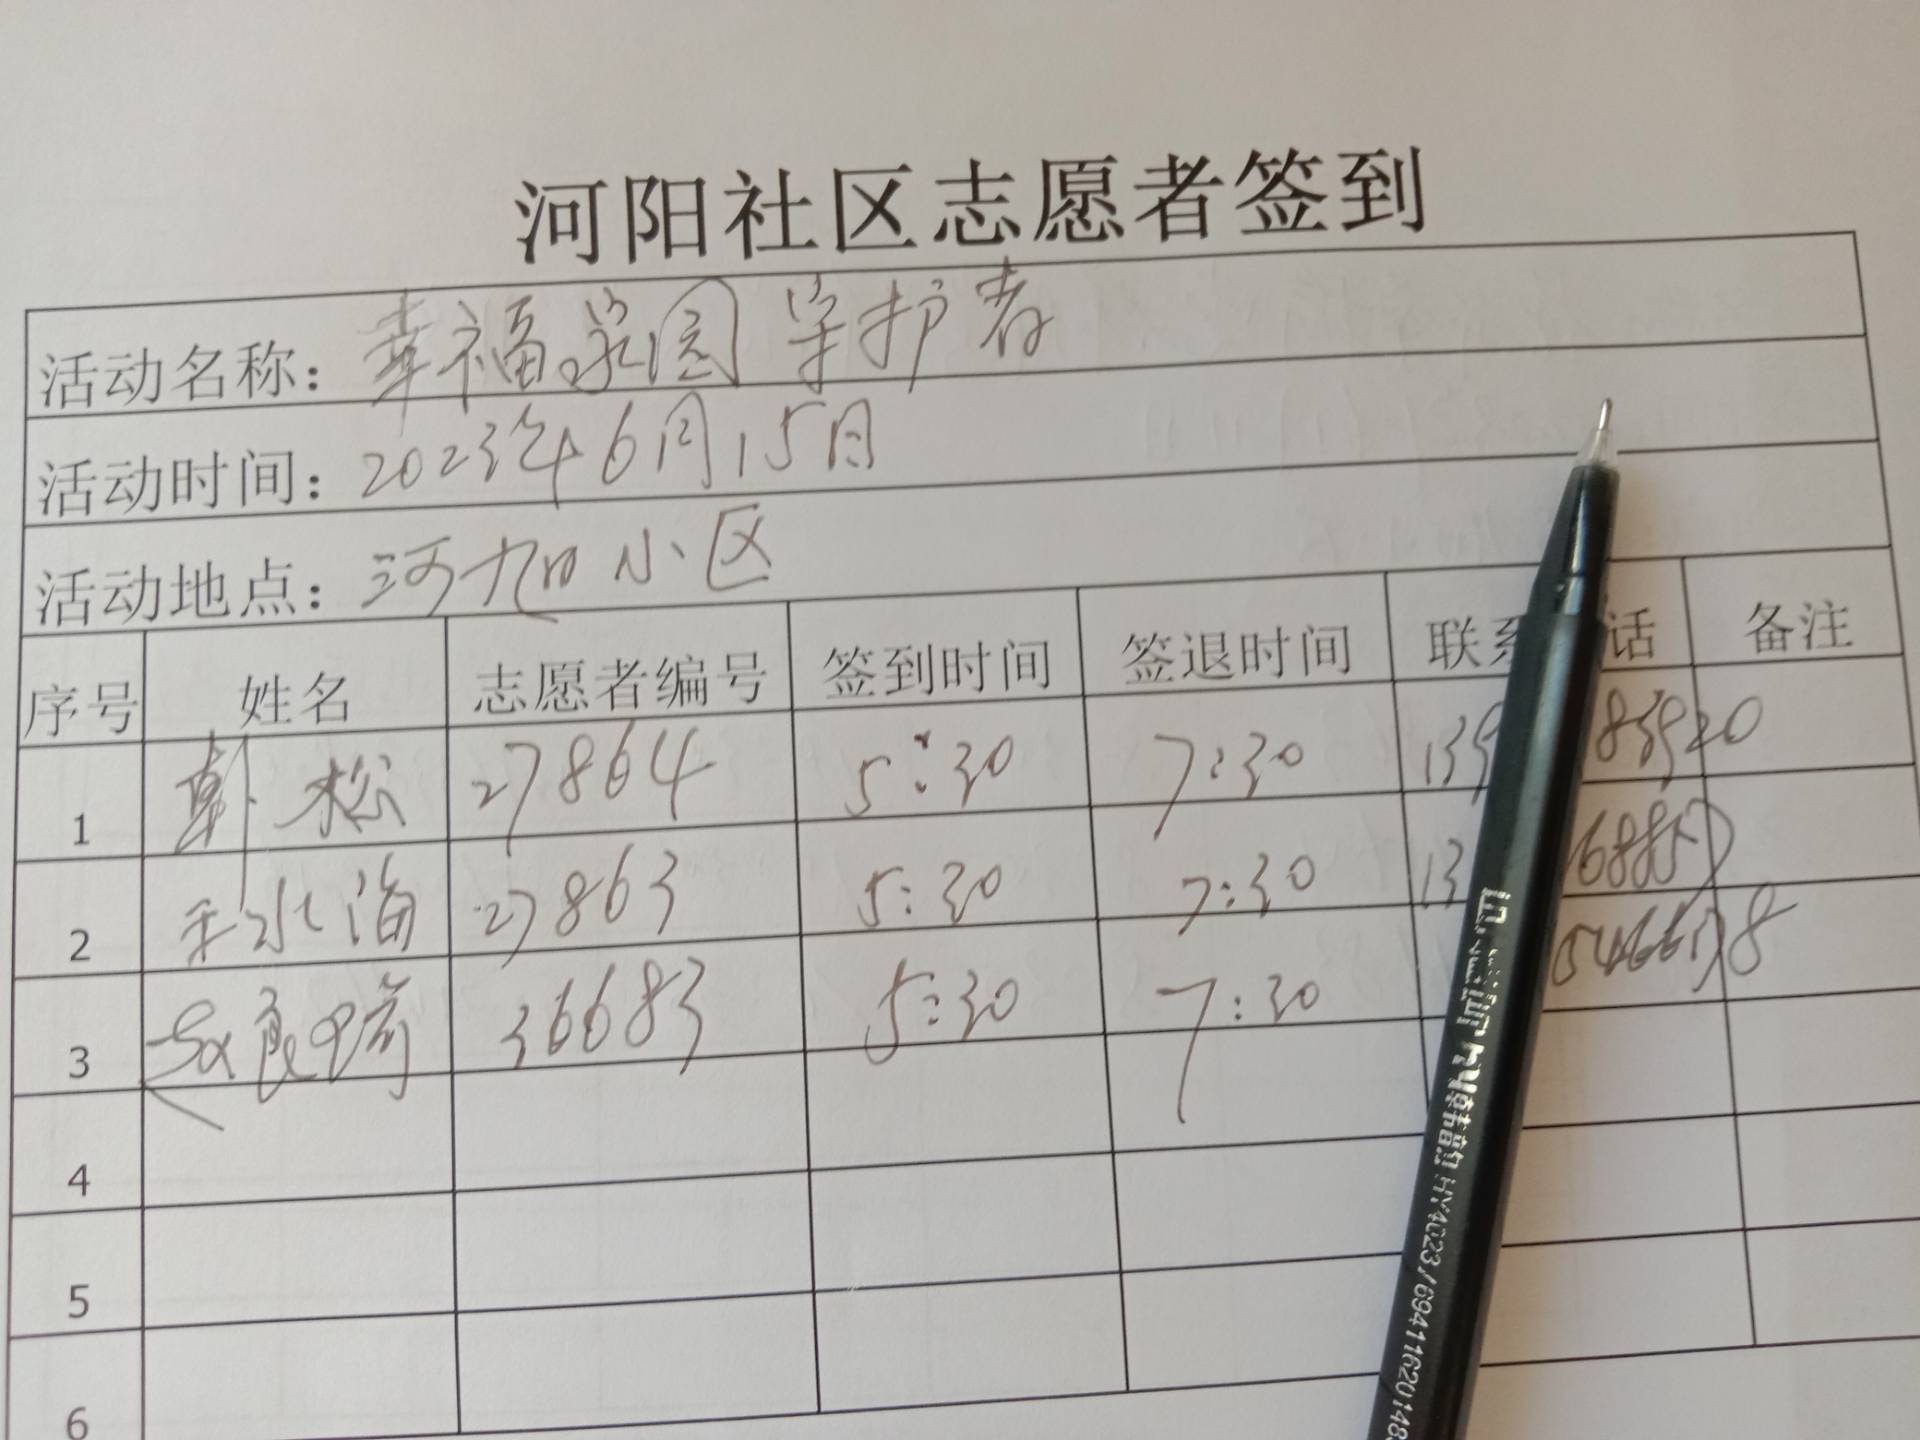 河阳社区志愿者签到
活动名称：幸福家园守护者
活动时间：2023年6月15日
活动地点：河旭小区
序号 姓名 志愿者编号 签到时间 签退时间 联系 话 备注
1 韩松 27864 5:30 7:30 139 83920
2 王水海 27863 5:30 7:30 13 16885
3 36683 5:30 7:30
4
5
6
HY4023/6941162014